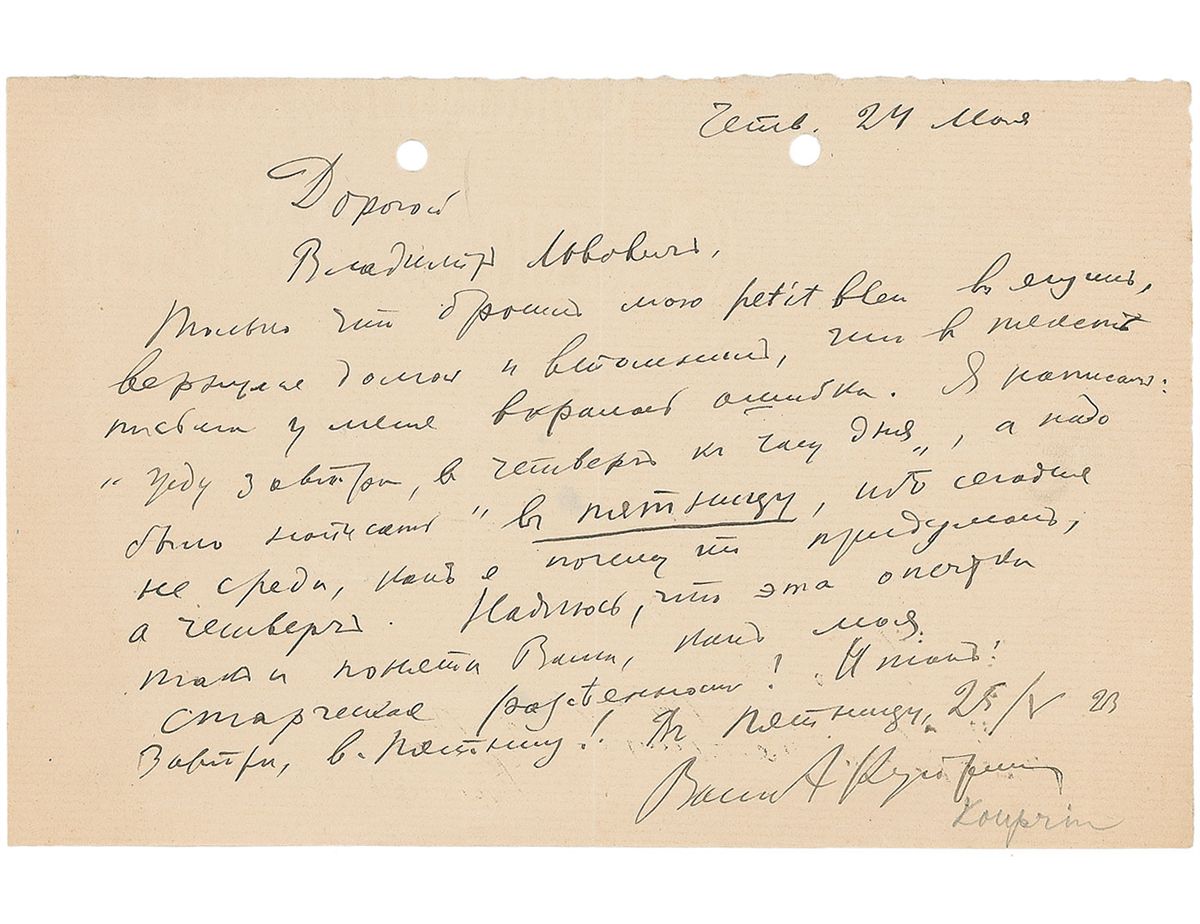 Четв. 24 Мая
Дорогой
Владиміръ Львовичъ,
Только что бросилъ мою petit bleu въ ящикъ,
вернулся домой и вспомнилъ, что въ тексте
письма у меня вкралась ошибка. Я написалъ:
"Уѣду завтра, въ четвергъ къ часу дня", а надо
было написать "въ пятницу, ибо сегодня
не среда, какъ я почему то придумалъ,
а четвергъ. Надѣюсь, что эта опечатка
такъ и понята Вами, какъ моя
старческая разсѣянность! Итакъ:
Завтра, въ пятницу! Въ пятницу, 25/V 23
Вашъ А Купринъ
Kouprin